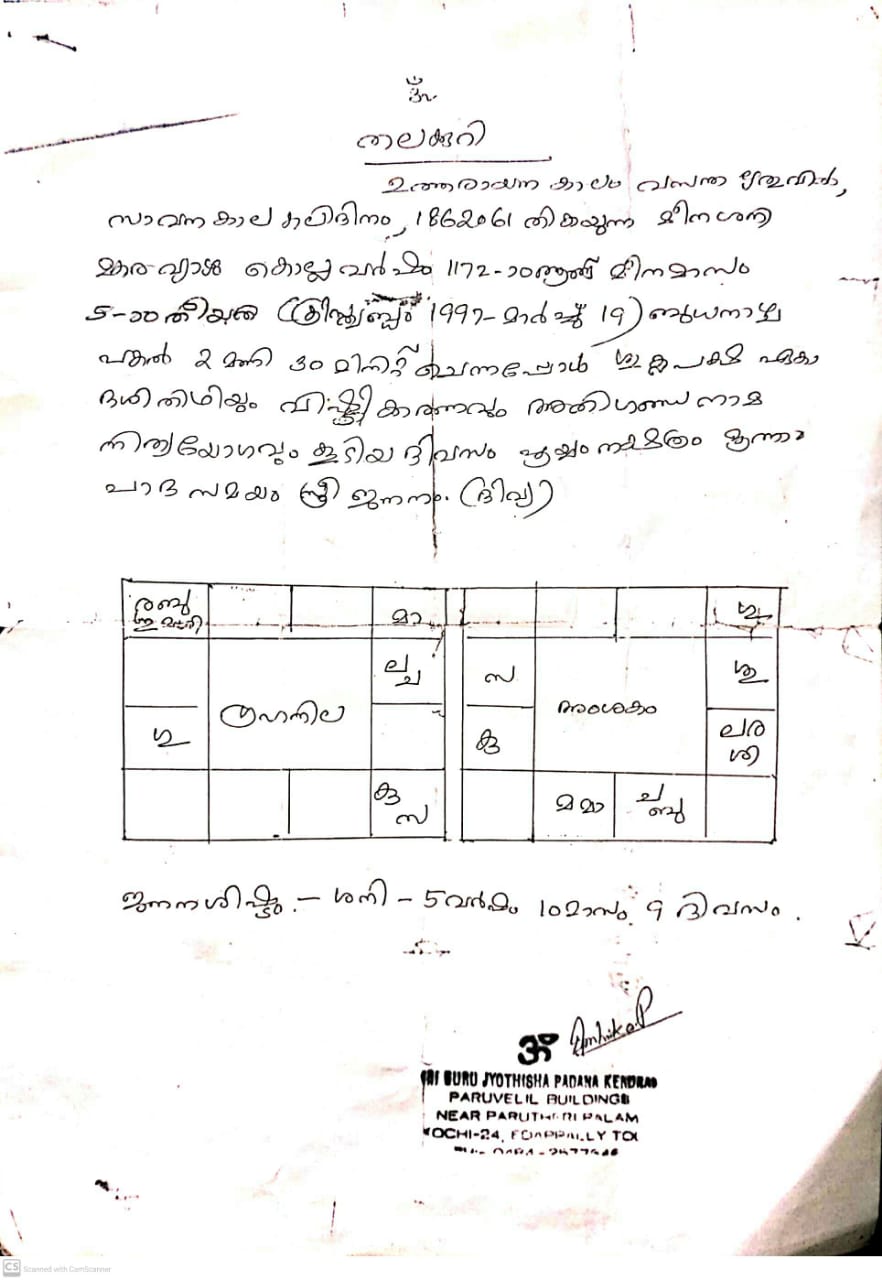 ॐ
തലക്കുറി
ഉത്തരായന കാലം വസന്ത ഋതുവിൽ,
സാവനകാല കലിദിനം, 1862061 തികയുന്ന മീനശനി
മകരവ്യാഴ കൊല്ലവർഷം 1172-ാംആണ്ട് മീനമാസം
5-ാംതീയതി (ക്രിസ്ത്വബ്ദം 1997-മാർച്ച് 19) ബുധനാഴ്ച
പകൽ 2 മണി 30 മിനിറ്റ് ചെന്നപ്പോൾ ശുക്ലപക്ഷ ഏകാ
ദശിതിഥിയും വിഷ്ടികാരണവും അതിഗണ്ഡനാമ
നിത്യയോഗവും കൂടിയ ദിവസം പൂയം നക്ഷത്രം മൂന്നാം
പാദ സമയം സ്ത്രീ ജനനം. (ദിവ്യ)
രബു മാ ഗു
ശുമശി
ല ച സ ശു
ഗ്രഹനില അംശകം
ഗു കു ലര
ശി
കു സ മമാ ച ബു
ജനനശിഷ്ടം - ശനി - 5വർഷം 10മാസം 9 ദിവസം.
ॐ Ambika.P
SRI GURU JYOTHISHA PADANA KENDRAM
PARUVELIL BUILDINGS
NEAR PARUTHERI PALAM
KOCHI-24, EDAPPALLY TOL
CS Scanned with CamScanner